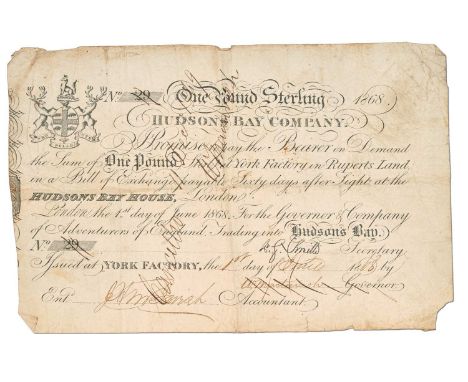 No. 29 One Pound Sterling 1868.
HUDSONS BAY COMPANY.
I Promise to pay the Bearer on Demand
the Sum of One Pound York Factory in Ruperts Land,
in a Bill of Exchange payable Sixty days after Sight at the
HUDSONS BAY HOUSE, London.
London the 1st day of June 1868. For the Governor & Company
of Adventurers of England, Trading into Hudsons Bay.
No. 29 W. G. Smith Secretary
Issued at YORK FACTORY, the 1st day of by
Governor
Entd. Accountant